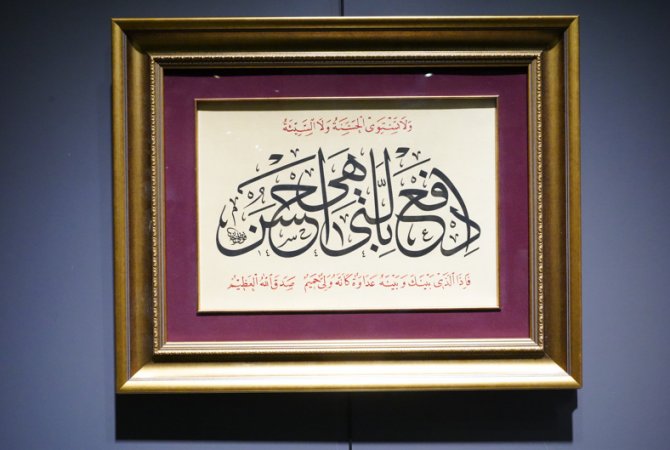 وَلَا تَسْتَوِى الْحَسَنَةُ وَلَا السَّيِّئَةُ
اِدْفَعْ بِالَّتِى هِىَ اَحْسَنُ
فَاِذَا الَّذِى بَيْنَكَ وَبَيْنَهُ عَدَاوَةٌ كَاَنَّهُ وَلِىٌّ حَمِيمٌ صَدَقَ اللّٰهُ الْعَظِيمُ